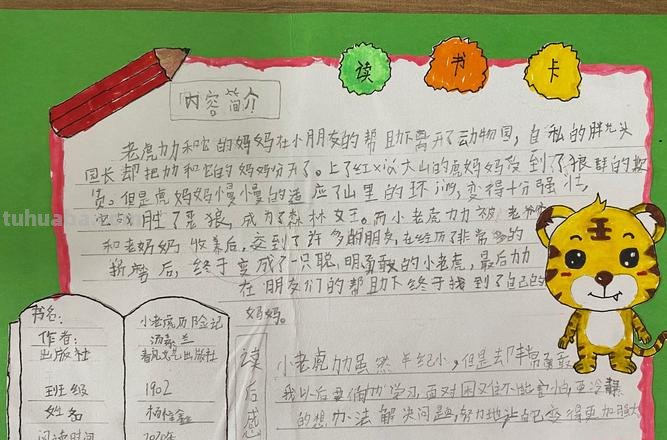 读 书 卡
内容简介
老虎力力和它的妈妈在小朋友的帮助下离开了动物园,自私的胖九头
园长却把力力和它的妈妈分开了。上了红义大山的虎妈妈受到了狼群的欺
负。但是虎妈妈慢慢的适应了山里的环境,变得十分强壮,
它战胜了恶狼,成为了森林女王。而小老虎力力被老
和老奶奶收养后,交到了许多的朋友,在经历了非常多的
后,终于变成了一只聪明勇敢的小老虎,最后力力
在朋友们的帮助下终于找到了自己的
妈妈。
书名: 小老虎历险记
作者: 汤素兰
出版社 春风文艺出版社
班级 1902
姓名
阅读时间 2020年
读后感
小老虎力力虽然年纪小,但是却非常勇敢
我以后要向力力学习,面对困难不能害怕,要冷静
的想办法解决问题,努力地让自己变得更加强大
tuhuapa